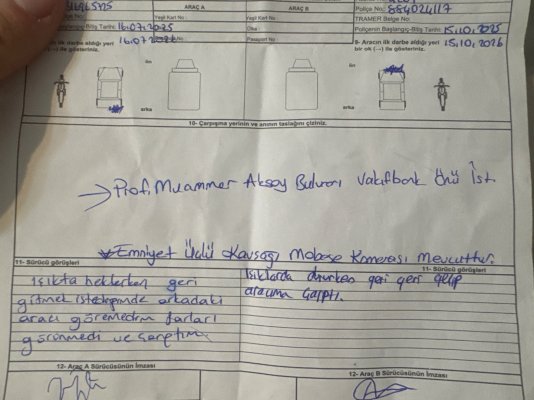 ARAÇ A
ARAÇ B
Poliçe No: 884024117
Yeşil Kart No
Yeşil Kart No
TRAMER Belge No:
Başlangıç-Bitiş Tarihi: 16.07.2025
Ülke
Poliçenin Başlangıç-Bitiş Tarihi: 15.10.2025
16.07.2026
Pasaport No
9- Aracın ilk darbe aldığı yeri 15.10.2026
bir ok (→) ile gösteriniz.
ön
ön
arka
arka
10- Çarpışma yerinin ve anının taslağını çiziniz.
→ Prof. Muammer Aksoy Bulvarı Vakıfbank Önü İst.
Emniyet Üçlü Kavşağı Mobese Kamerası Mevcuttur.
11- Sürücü görüşleri
11- Sürücü görüşleri
Işıkta beklerken geri
gitmek istediğimde arkadaki
aracı göremedim farları
görünmedi ve çarptım
Işıklarda dururken geri geri gelip
aracıma çarptı.
12- Araç A Sürücüsünün İmzası
12- Araç B Sürücüsünün İmzası